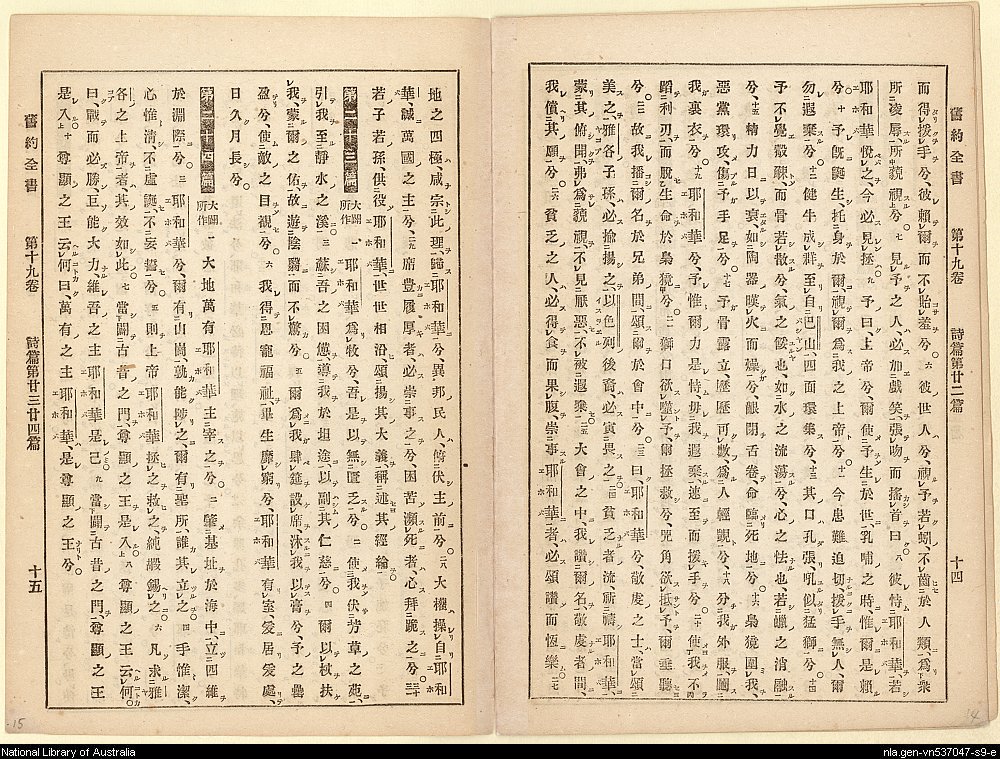 舊約全書 第十九卷 詩篇第廿二篇 十四
而得援手兮、彼賴爾而不貽羞兮。六 彼世人兮、視予若蚓、不齒於人類、爲衆
所凌辱、所藐視兮。七 見予之人、必加戲笑、張吻而搖首曰、八 彼恃耶和華、若
耶和華悅之、今必見拯、九 予曰上帝兮、爾使予生於世、乳哺之時、惟爾是賴
兮。十 予旣誕生、托身於爾、視爾爲我之上帝兮。十一 今患難迫切、援手無人、爾
勿遐棄兮。十二 健牛成群、至自巴山、四面環集兮。十三 其口孔張、吼似猛獅兮。十四
予不覺觳觫、而骨若散兮、氣之餒也、如水之流蕩兮、心之怯也、若蠟之消融
兮。十五 精力日以衰、如陶器暵火而燥兮、齦閉舌卷、命臨死地兮。十六 梟獍圍我、
惡黨環攻、傷予手足兮。十七 予骨露立、歷歷可數、爲人輕覷兮。十八 分我外服、鬮
我裏衣兮。十九 耶和華兮、予惟爾力是恃、毋我遐棄、速至而援手兮。二十 使我不
蹈利刃、而脫生命於梟獍兮。二一 獅口欲噬予、爾拯救兮、兕角欲抵予、爾垂聽
兮。二二 故我播爾名於兄弟間、頌爾於會中兮。二三 曰、耶和華兮、敬虔之士、當頌
美之、雅各子孫、必揄揚之、以色列後裔、必寅畏之、二四 貧乏者流、祈禱耶和華、
蒙其俯聞、弗爲藐視、不見厭惡、不被遐棄。二五 大會之中、我讚爾名、敬虔者間、
我償其願兮。二六 貧乏之人、必得食而果腹、崇事耶和華者、必頌讚而恆樂。二七
地之四極、咸宗此理、歸耶和華兮、異邦民人、俯伏主前兮。二八 大權操自耶和
華、誠萬國之主兮、二九 席豐履厚者、必崇事之兮、困苦瀕死者、心拜跪之兮、三十
若子若孫、俱役耶和華、世世相沿、頌揚其大義、稱述其經綸。
第二十三篇 大闢所作 一 耶和華爲牧兮、吾是以無匱乏兮。二 使我伏芳草之苑、
引我至靜水之溪。三 蘇吾之困憊、導我於坦途、以副其仁慈兮。四 爾以杖扶
我、蒙爾之佑、故遊陰翳而不驚兮。五 爾爲我肆筵設席、沐我以膏兮、予之罍
盈兮、使敵之目覩兮。六 我得恩寵福祉、畢生靡窮兮、耶和華有室、爰居爰處、
日久月長兮。
第二十四篇 大闢所作 一 大地萬有、耶和華主宰之兮。二 肇基址於海中、立四維
於淵際兮。三 耶和華兮、爾有山崗、孰能陟之、爾有聖所、誰其立之。四 手惟潔、
心惟清、不虛誕、不妄誓兮。五 則上帝耶和華、拯之救之、純嘏錫之。六 凡求雅
各之上帝者、其效如此。七 當闢古昔之門、尊顯之王是入、八 尊顯之王云何、
曰、戰而必勝、巨能大力、維吾之主耶和華是已。九 當闢古昔之門、尊顯之王
是入。十 尊顯之王云何、曰、萬有之主耶和華、是尊顯之王兮。
舊約全書 第十九卷 詩篇第廿三廿四篇 十五
15
14
National Library of Australia
nla.gen-vn537047-s9-e